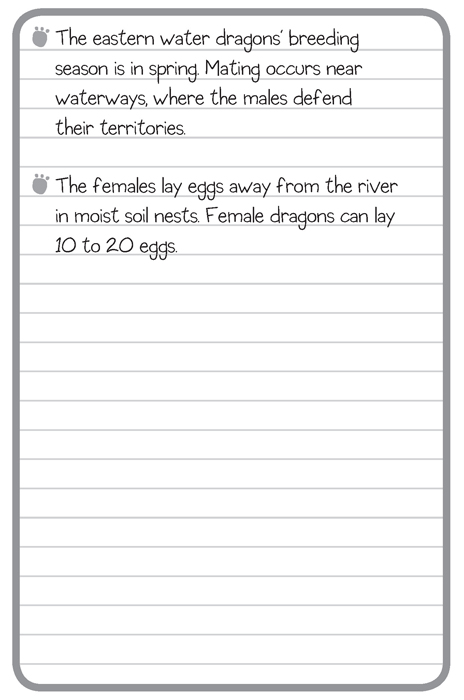 The eastern water dragons' breeding
season is in spring. Mating occurs near
waterways, where the males defend
their territories.
The females lay eggs away from the river
in moist soil nests. Female dragons can lay
10 to 20 eggs.